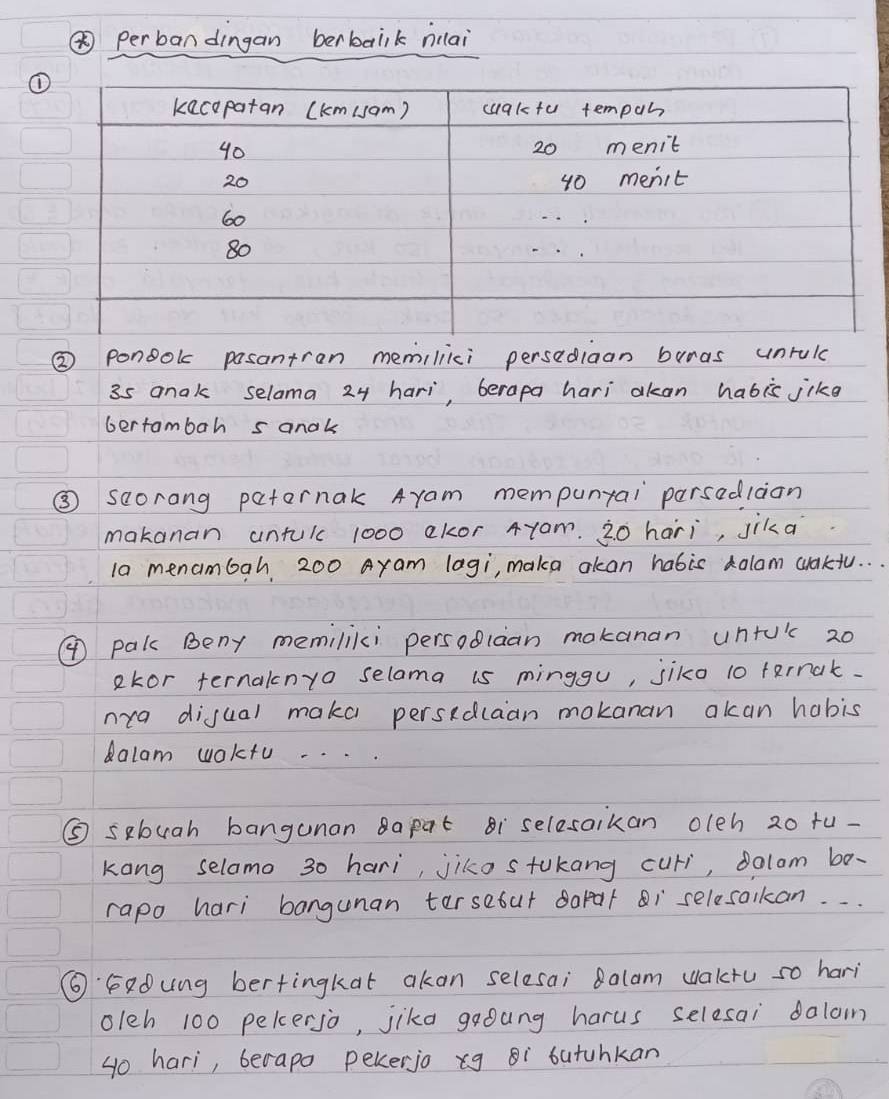 * perbandingan berbalik nilai
①
Kecepatan (km/jam) waktu tempuh
40 20 menit
20 40 menit
60 ...
80 ....
② pondok pesantren memiliki persediaan beras untuk
35 anak selama 24 hari, berapa hari akan habis jika
bertambah 5 anak
③ seorang peternak Ayam mempunyai persediaan
makanan untuk 1000 ekor Ayam. 30 hari, jika
ia menambah 200 Ayam lagi, maka akan habis dalam waktu...
④ pak Beny memiliki persediaan makanan untuk 20
ekor ternaknya selama 15 minggu, jika 10 ternak-
nya dijual maka persediaan makanan akan habis
dalam waktu ....
⑤ sebuah bangunan dapat di selesaikan oleh 20 tu-
kang selama 30 hari, jika 5 tukang cuti, dalam be-
rapa hari bangunan tersebut dapat di selesaikan ...
⑥ Gedung bertingkat akan selesai dalam waktu 50 hari
oleh 100 pekerja, jika gedung harus selesai dalam
40 hari, berapa pekerja yg di butuhkan